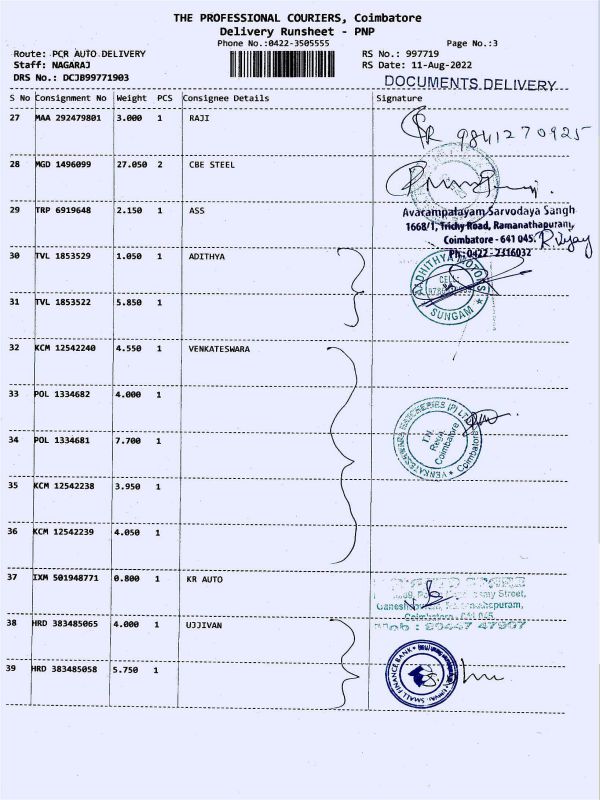 THE PROFESSIONAL COURIERS, Coimbatore
Delivery Runsheet - PNP
Phone No.:0422-3505555 Page No.:3
Route: PCR AUTO DELIVERY RS No.: 997719
Staff: NAGARAJ RS Date: 11-Aug-2022
DRS No.: DCJB99771903 DOCUMENTS DELIVERY
S No Consignment No Weight PCS Consignee Details Signature
27 MAA 292479801 3.000 1 RAJI 9841270925
28 MGD 1496099 27.050 2 CBE STEEL
29 TRP 6919648 2.150 1 ASS
Avarampalayam Sarvodaya Sangh
1668/1, Trichy Road, Ramanathapuram,
Coimbatore - 641 045. R Vijay
Ph: 0422 - 2316032
30 TVL 1853529 1.050 1 ADITHYA
AADHITHYA MOTORS
CELL:
SUNGAM
31 TVL 1853522 5.850 1
32 KCM 12542240 4.550 1 VENKATESWARA
33 POL 1334682 4.000 1
VENKATESHWARA BATCHERIES (P) LTD
T.N.
Regn.
Coimbatore
Coimbatore
34 POL 1334681 7.700 1
35 KCM 12542238 3.950 1
36 KCM 12542239 4.050 1
37 IXM 501948771 0.800 1 KR AUTO
Street,
Coimbatore - 641 045
Mob : 80447 47907
38 HRD 383485065 4.000 1 UJJIVAN
39 HRD 383485058 5.750 1
SMALL FINANCE BANK